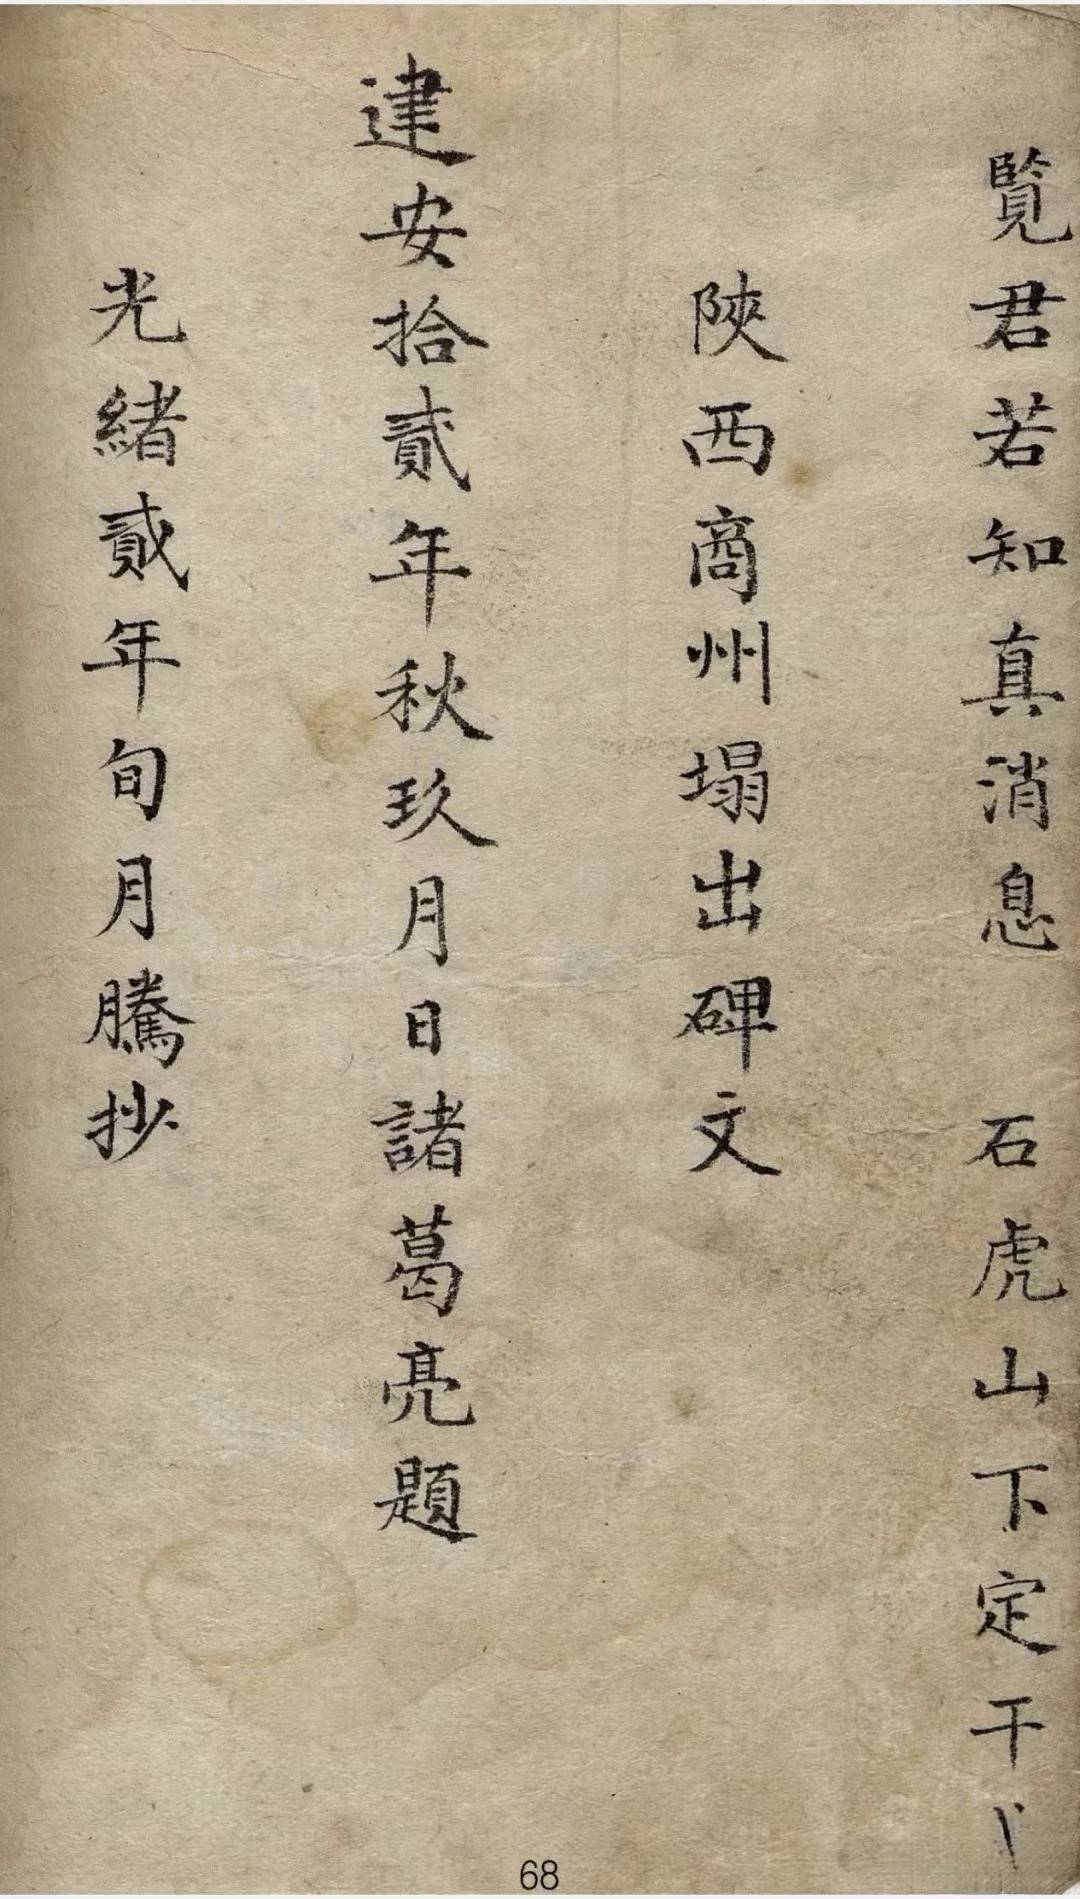 覧君若知真消息　石虎山下定干〻
陝西商州塌出碑文
建安拾貳年秋玖月日諸葛亮題
光緒貳年旬月騰抄
68